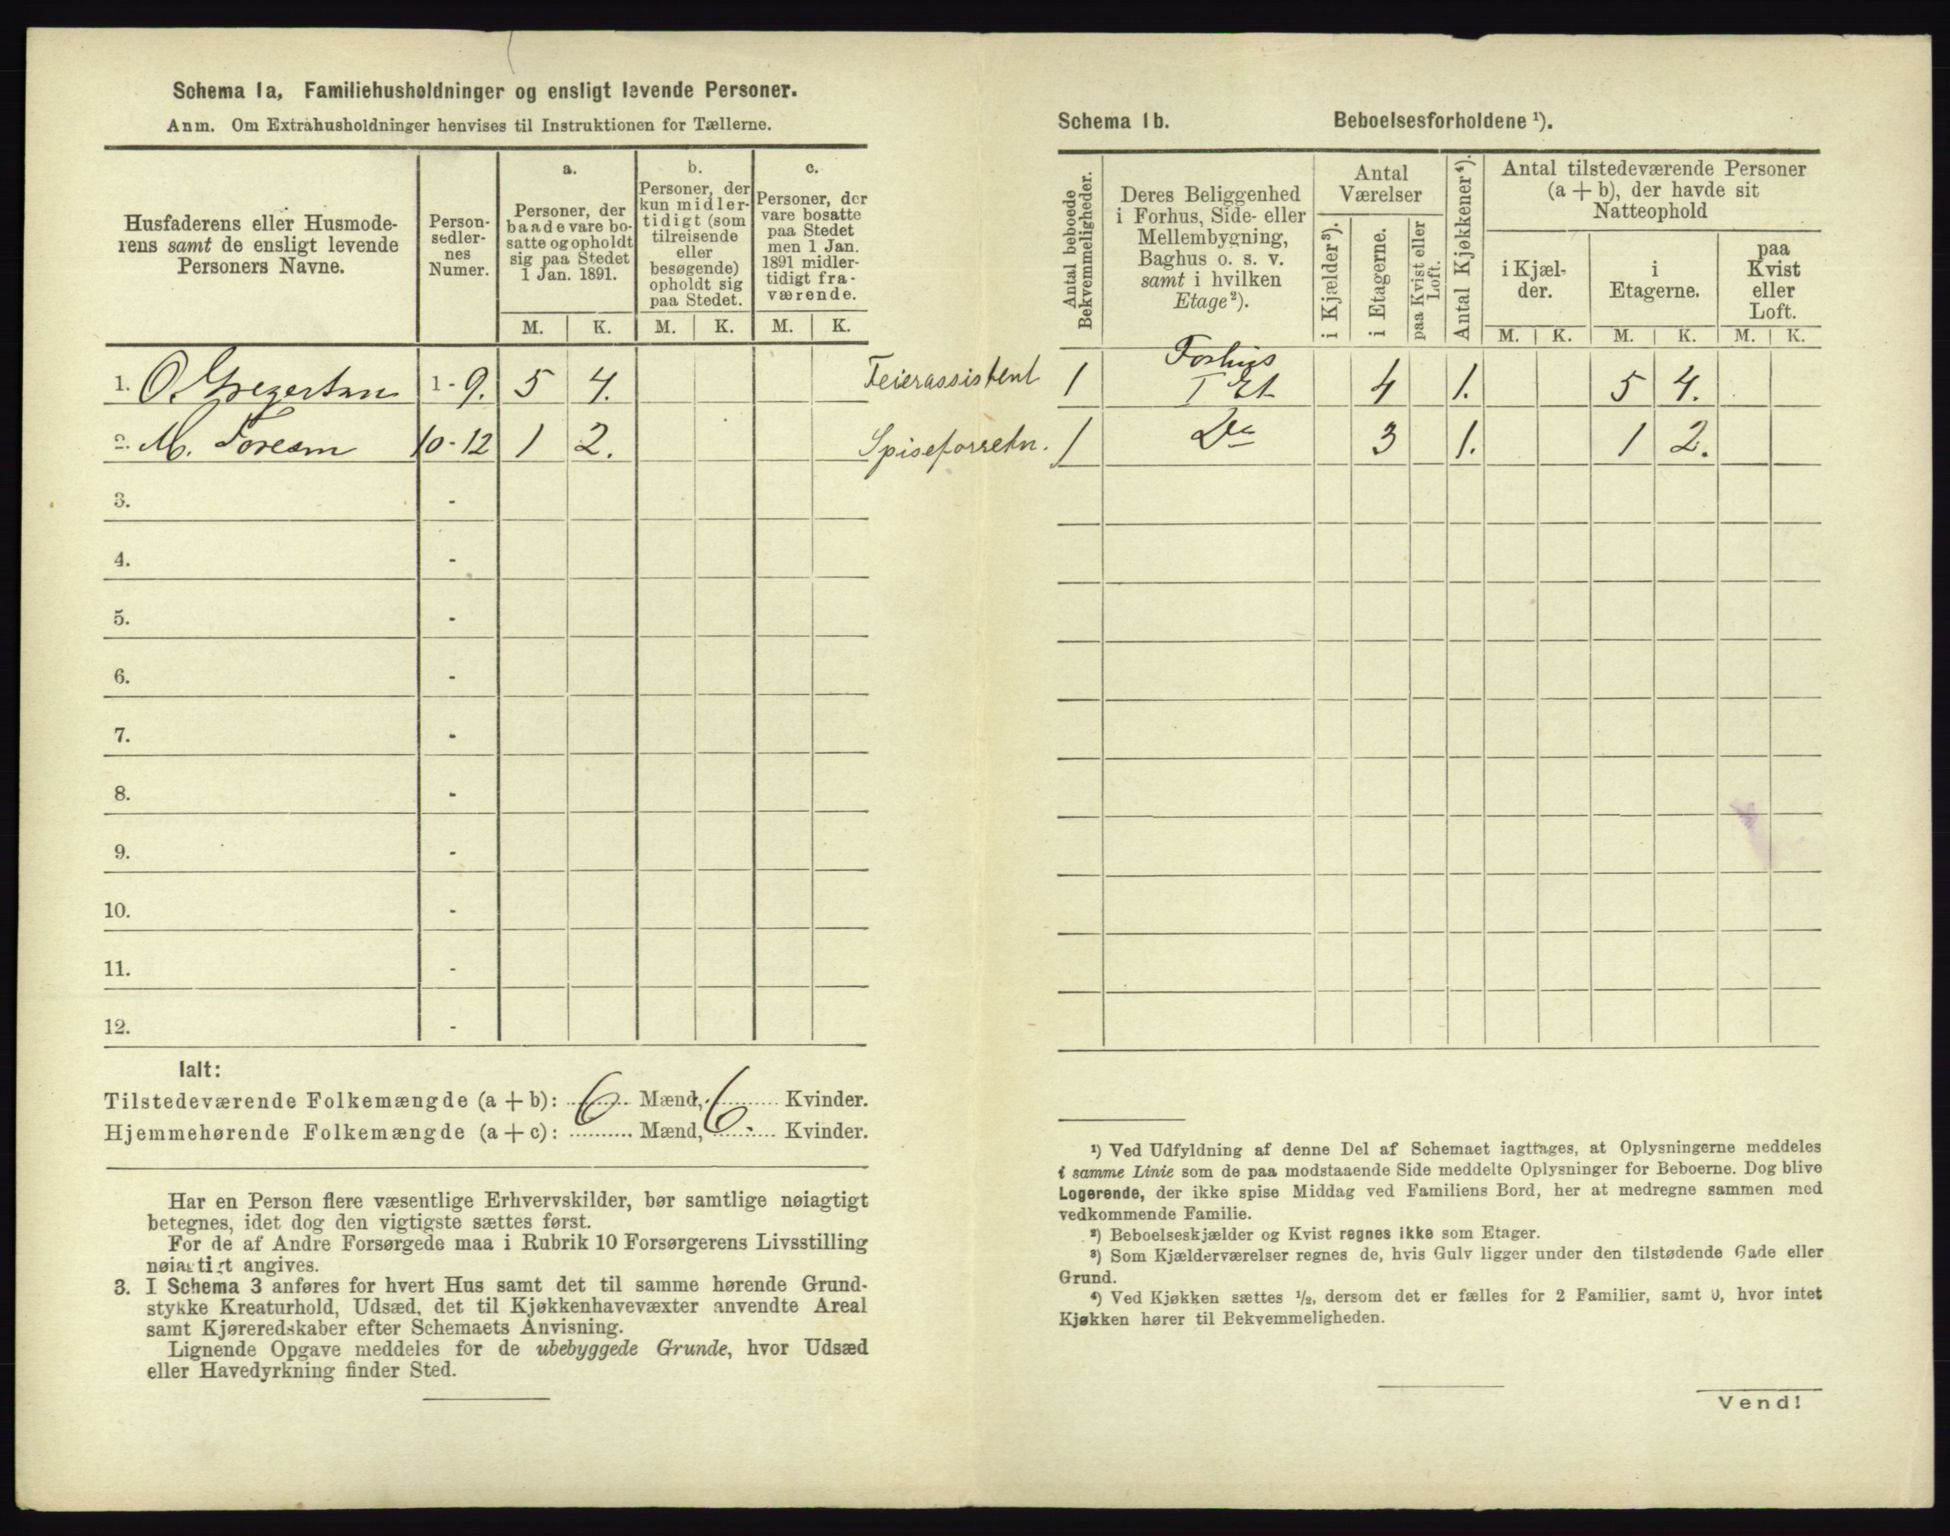 Schema 1a, Familiehusholdninger og ensligt levende Personer.
Anm. Om Extrahusholdninger henvises til Instruktionen for Tællerne.
Husfaderens eller Husmode-
rens samt de ensligt levende
Personers Navne.
Person-
sedler-
nes
Numer.
a.
Personer, der
baade vare bo-
satte og opholdt
sig paa Stedet
1 Jan. 1891.
b.
Personer, der
kun midler-
tidigt (som
tilreisende
eller
besøgende)
opholdt sig
paa Stedet.
c.
Personer, der
vare bosatte
paa Stedet
men 1 Jan.
1891 midler-
tidigt fra-
værende.
M. K. M. K. M. K.
1. O. Gregertsen 1 - 9. 5 4. Feierassistent
2. M. 10 - 12 1 2. Spiseforretn.
3. -
4. -
5. -
6. -
7. -
8. -
9. -
10. -
11. -
12. -
Ialt:
Tilstedeværende Folkemængde (a + b): 6 Mænd, 6 Kvinder.
Hjemmehørende Folkemængde (a + c): Mænd, Kvinder.
Har en Person flere væsentlige Erhvervskilder, bør samtlige nøiagtigt
betegnes, idet dog den vigtigste sættes først.
For de af Andre Forsørgede maa i Rubrik 10 Forsørgerens Livsstilling
nøiagtigt angives.
3. I Schema 3 anføres for hvert Hus samt det til samme hørende Grund-
stykke Kreaturhold, Udsæd, det til Kjøkkenhavevæxter anvendte Areal
samt Kjøreredskaber efter Schemaets Anvisning.
Lignende Opgave meddeles for de ubebyggede Grunde, hvor Udsæd
eller Havedyrkning finder Sted.
Schema 1b. Beboelsesforholdene ¹).
Antal beboede
Bekvemmeligheder.
Deres Beliggenhed
i Forhus, Side- eller
Mellembygning,
Baghus o. s. v.
samt i hvilken
Etage ²).
Antal
Værelser
i Kjælder ³).
i Etagerne.
paa Kvist eller
Loft.
Antal Kjøkkener ⁴).
Antal tilstedeværende Personer
(a + b), der havde sit
Natteophold
i Kjæl-
der.
i
Etagerne.
paa
Kvist
eller
Loft.
M. K. M. K. M. K.
1 Forhus
I Et 4 1. 5 4.
1 Do 3 1. 1 2.
¹) Ved Udfyldning af denne Del af Schemaet iagttages, at Oplysningerne meddeles
i samme Linie som de paa modstaaende Side meddelte Oplysninger for Beboerne. Dog blive
Logerende, der ikke spise Middag ved Familiens Bord, her at medregne sammen med
vedkommende Familie.
²) Beboelseskjælder og Kvist regnes ikke som Etager.
³) Som Kjælderværelser regnes de, hvis Gulv ligger under den tilstødende Gade eller
Grund.
⁴) Ved Kjøkken sættes ¹/₂, dersom det er fælles for 2 Familier, samt 0, hvor intet
Kjøkken hører til Bekvemmeligheden.
Vend!